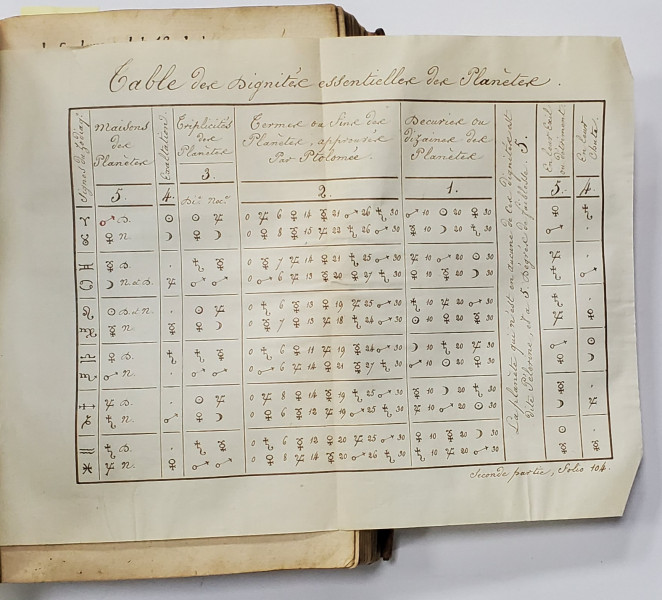 Table des Dignités essentielles des Planètes.
Signes du Zodiaq:
Maisons
des
Planètes
5.
Exaltation.
4.
Triplicités
des
Planètes
3.
Di: Noc:
Termes ou Fins des
Planètes, approuvés
Par Ptolomée.
2.
Decuries ou
dizaines des
Planètes
1.
La planète qui n'est en aucune de ces dignités est
dite Peleonne, et a 5 Dégrés de foiblesse 5.
En leur Exil
ou détriment.
5.
En leur
Chute.
4.
♈ ♂ D. ☉ ☉ ♃ 0 ♃ 6 ♀ 14 ☿ 21 ♂ 26 ♄ 30 ♂ 10 ☉ 20 ♀ 30 ♀ ♄
♉ ♀ N. ☽ ♀ ☽ 0 ♀ 8 ☿ 15 ♃ 22 ♄ 26 ♂ 30 ☿ 10 ☽ 20 ♄ 30 ♂ .
♊ ☿ D. . ♄ ☿ 0 ☿ 7 ♃ 14 ♀ 21 ♄ 25 ♂ 30 ♃ 10 ♂ 20 ☉ 30 ♃ .
♋ ☽ N & D. ♃ ♂ ♂ 0 ♂ 6 ♃ 13 ☿ 20 ♀ 27 ♄ 30 ♀ 10 ☿ 20 ☽ 30 ♄ ♂
♌ ☉ D & N. . ☉ ♃ 0 ♄ 6 ☿ 13 ♀ 19 ♃ 25 ♂ 30 ♄ 10 ♃ 20 ♂ 30 ♄ .
♍ ☿ N. ☿ ♀ ☽ 0 ☿ 7 ♀ 13 ♃ 18 ♄ 24 ♂ 30 ☉ 10 ♀ 20 ☿ 30 ♃ ♀
♎ ♀ D. ♄ ♄ ☿ 0 ♄ 6 ♀ 11 ♃ 19 ☿ 24 ♂ 30 ☽ 10 ♄ 20 ♃ 30 ♂ ☉
♏ ♂ N. . ♂ ♂ 0 ♂ 6 ♃ 14 ♀ 21 ☿ 27 ♄ 30 ♂ 10 ☉ 20 ♀ 30 ♀ ☽
♐ ♃ D. . ☉ ♃ 0 ♃ 8 ♀ 14 ☿ 19 ♄ 25 ♂ 30 ☿ 10 ☽ 20 ♄ 30 ☿ .
♑ ♄ N. ♂ ♀ ☽ 0 ♀ 6 ☿ 12 ♃ 19 ♂ 25 ♄ 30 ♃ 10 ♂ 20 ☉ 30 ☽ ♃
♒ ♄ D. . ♄ ☿ 0 ♄ 6 ☿ 12 ♀ 20 ♃ 25 ♂ 30 ♀ 10 ☿ 20 ☽ 30 ☉ .
♓ ♃ N. ♀ ♂ ♂ 0 ♀ 8 ♃ 14 ☿ 20 ♂ 26 ♄ 30 ♄ 10 ♃ 20 ♂ 30 ☿ ☿
Seconde partie, Folio 104.